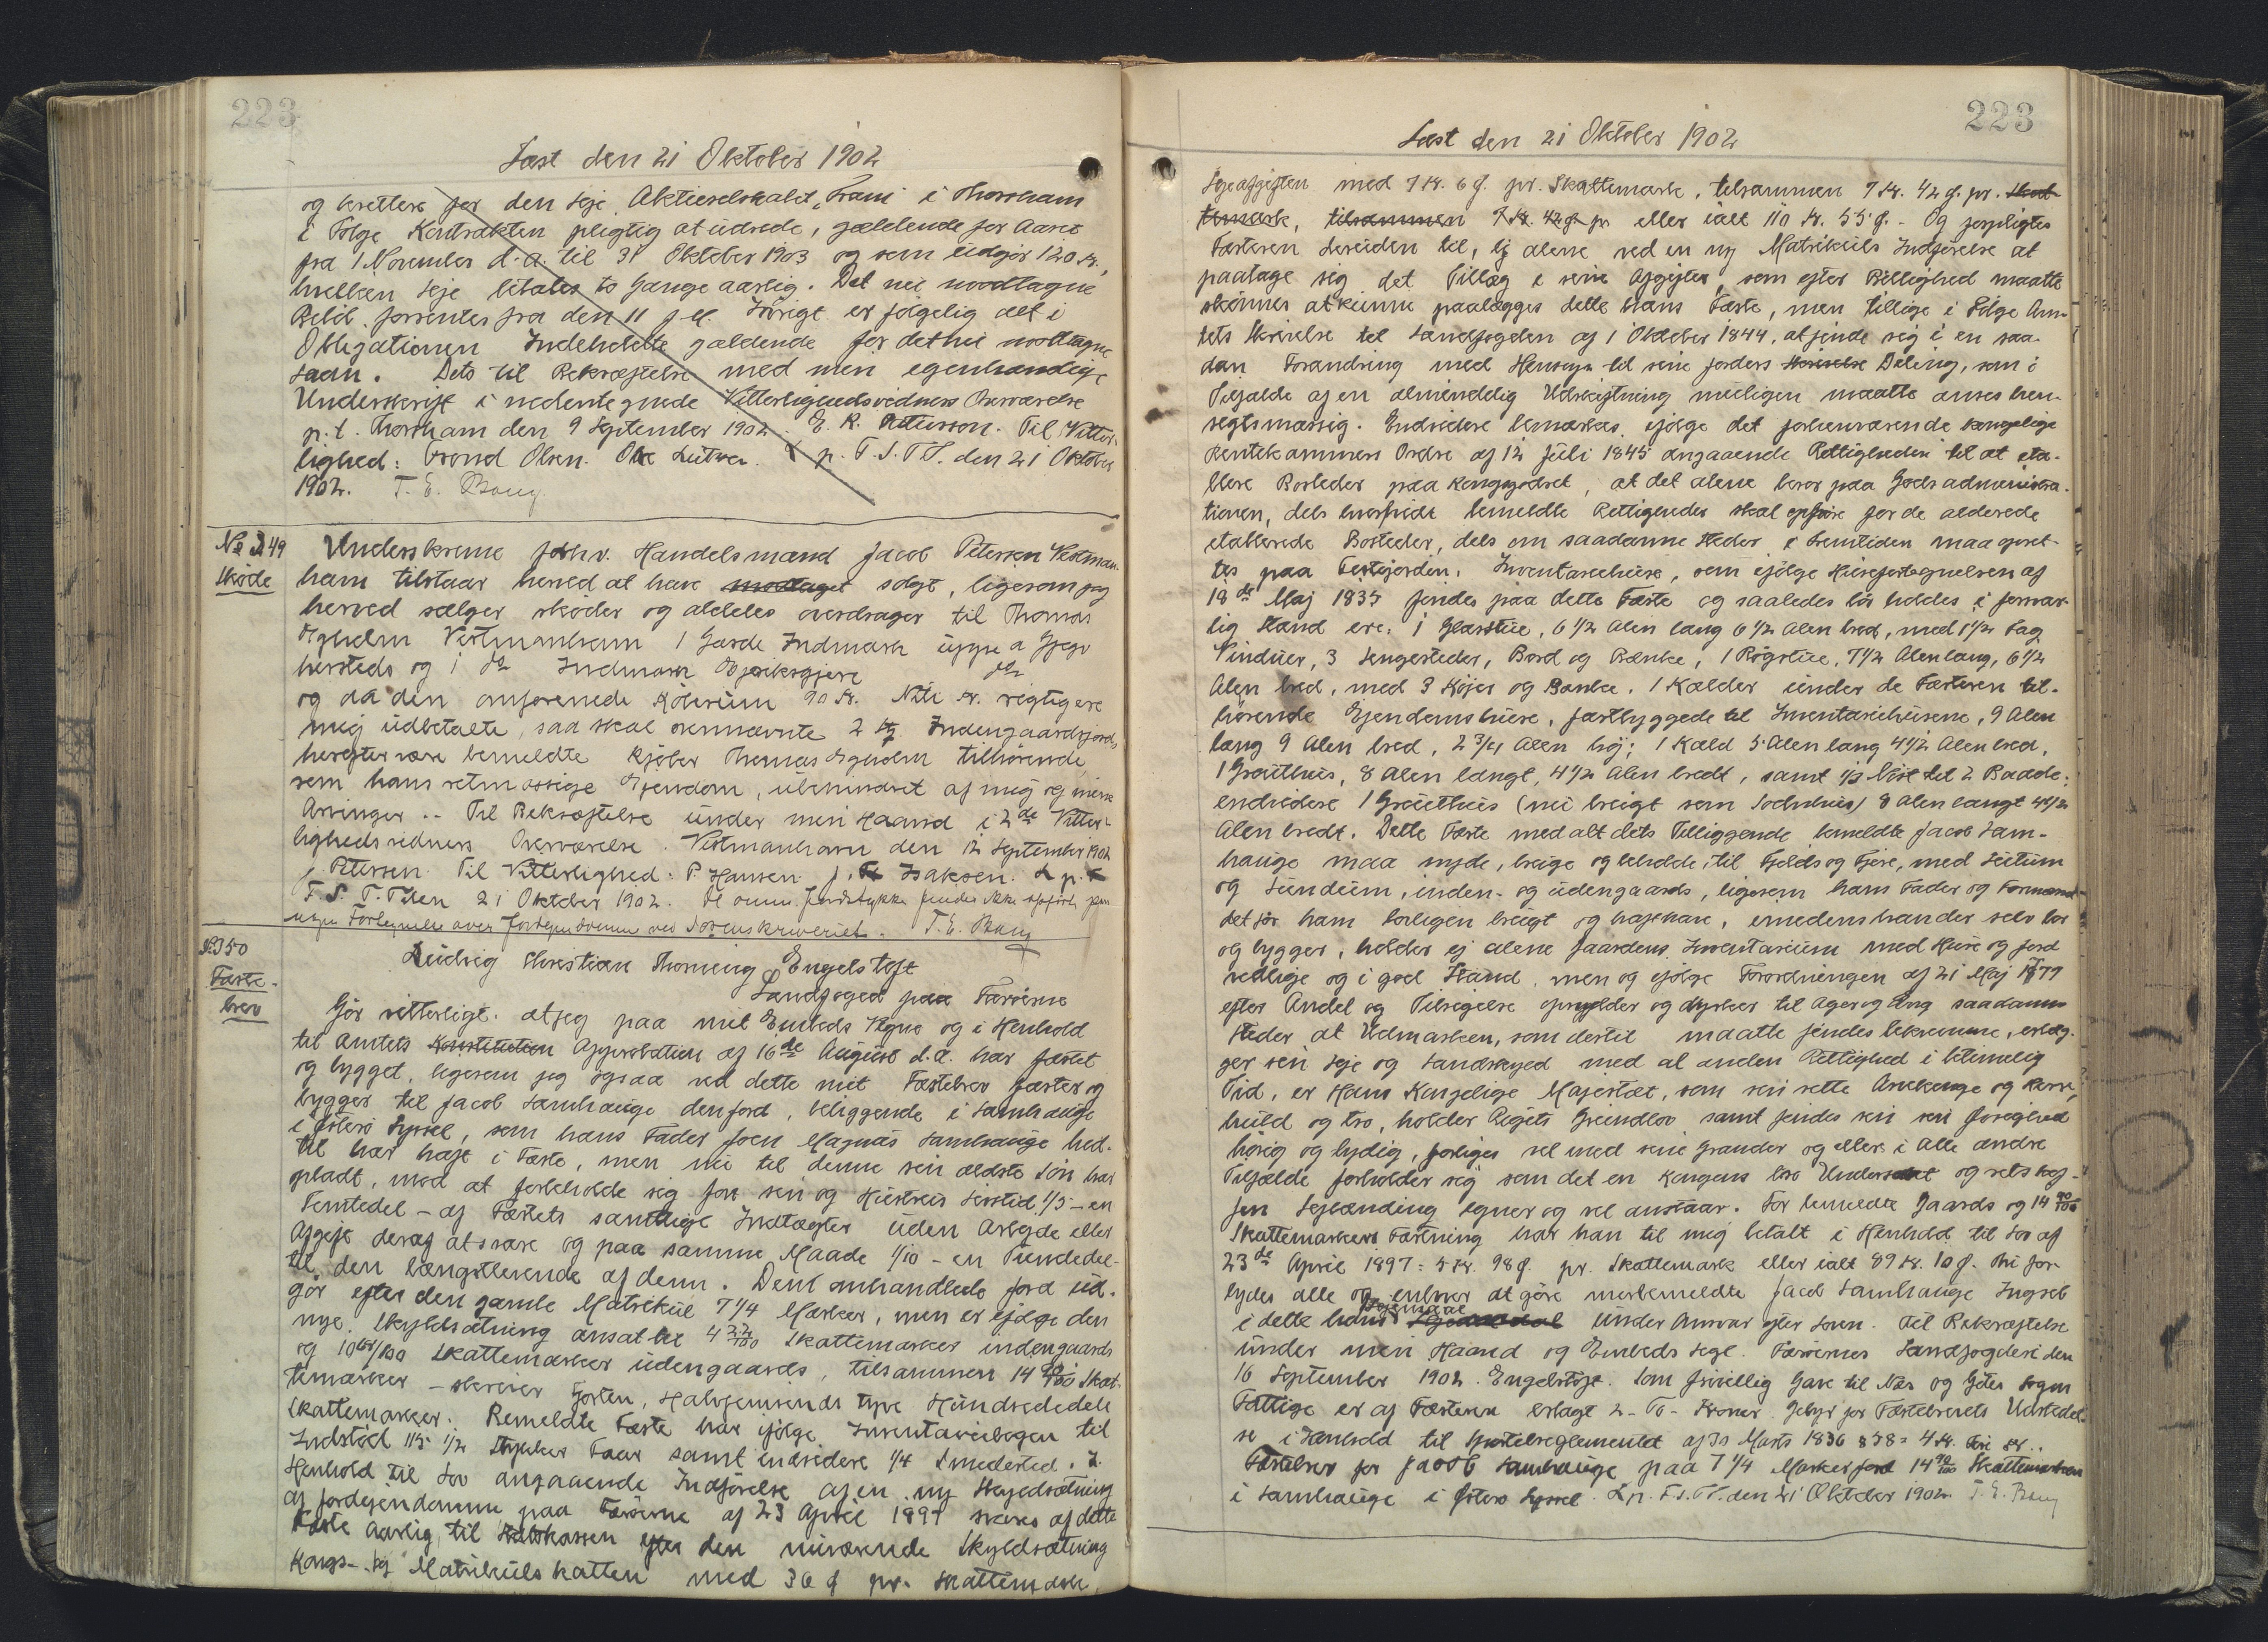 223
Læst den 21 Oktober 1902
og beretter for den Leje Aktieselskabet "Fram" i Thorshavn
i Følge Kontrakten pligtig at udrede, gældende for Aaret
fra 1 November d.a. til 31 Oktober 1903 og som udgjør 120 Kr.,
hvilken Leje betales to Gange aarlig. Det nu modtagne
Beløb forrentes fra den 11 Iøvrigt er følgelig alt i
Obligationen Indeholdte gældende for det nu modtagne
Laan. Dets til Bekræftelse med min egenhændige
Underskrift i nedentegnede Vitterlighedsvidners Overværelse
p.t. Thorshavn den 9 September 1902. E. R. Petersson. Til Vitter-
lighed: Trond Olsen. Ole L p. F. S. T. T. den 21 Oktober
1902. T. E. Bang
№ 349
Skøde
Underskrevne forhv. Handelsmand Jacob Petersen Vestman-
havn tilstaar herved at have modtaget solgt, ligesom jeg
herved sælger skøder og aldeles overdrager til Thomas
Egholm Vestmanhavn 1 Gærde Indmark uppe a Gjegv
hersteds og 1 do Indmark do
og da den omforenede Købesum 90 Kr. Niti Kr. rigtig ere
mig udbetalte, saa skal ovennævnte 2 Stk. Indengaardsjords
herefter være bemeldte Kjøber Thomas Egholm tilhørende
som hans retmæssige Ejendom, ubehindret af mig og mine
Arvinger.- Til Bekræftelse under min Haand i 2de Vitter-
lighedsvidners Overværelse. Vestmanhavn den 12 September 1902
J. Petersen. Til Vitterlighed: P. Hansen. J. F. Isaksen. L p.
F. S. T. T. den 21 Oktober 1902. De omm. Jordstykker findes ikke opført paa
nogen Fortegnelse over Jordejendomme ved Sorenskriveriet. T. E. Bang
№ 350
Fæste-
brev
Ludvig Christian Thorning Engelstoft
Landfoged paa Færøerne
Gør vitterligt: at jeg paa mit Embeds Vegne og i Henhold
til Amtets Konstitution Approbation af 16de August d.a. har fæstet
og bygget, ligesom jeg ogsaa ved dette mit Fæstebrev fæster og
bygger til Jacob Lambhauge den Jord, beliggende i Lambhauge
i Østerø Syssel, som hans Fader Joen Magnus Lambhauge hid-
til har haft i Fæste, men nu til denne sin ældste Søn har
opladt, mod at forbeholde sig for sin og Hustrus Livstid 1/5 - en
Femtedel - af Fæstets samtlige Indtægter uden Arbejde eller
Afgift deraf at svare og paa samme Maade 1/10 - en Tiendedel -
til den længstlevende af dem. Den omhandlede Jord ud-
gør efter den gamle Matrikul 7 1/4 Marker, men er ifølge den
nye Skyldsætning ansat til 4 22/100 Skattemarker indengaards
og 10 68/100 Skattemarker udengaards, tilsammen 14 90/100 Skat-
temarker - skriver Fjorten, Halvfemsinds tyve Hundrededele
Skattemarker. Bemeldte Fæste har ifølge Inventariebogen til
Indstød 115 1/2 Stykker Faar samt endvidere 1/4 Smedested. I
Henhold til Lov angaaende Indførelse af en ny Skyldsætning
af Jordejendomme paa Færøerne af 23 April 1897 svares af dette
Fæste aarlig, til Statskassen efter den nuværende Skyldsætning
Kongs- og Matrikulskatten med 36 ø pr. Skattemark,
223
Læst den 21 Oktober 1902
Lejeafgiften med 7 Kr. 6 ø. pr. Skattemark, tilsammen 7 Kr. 42 ø. pr. Skat-
temark, tilsammen 7 Kr. 42 ø pr eller ialt 110 Kr. 55 ø. - Og forpligtes
Fæsteren desuden til, ej alene ved en ny Matrikuls Indførelse at
paatage sig det Tillæg i sine Afgifter som efter Billighed maatte
skønnes at kunne paalægges dette hans Fæste, men tillige i Følge Am-
tets Skrivelse til Landfogden af 1 Oktober 1844, at finde sig i en saa-
dan Forandring med Hensyn til sine Jorders Deling, som i
Tilfælde af en almindelig Udskiftning muligen maatte anses hen-
sigtsmæssig. Endvidere bemærkes ifølge det forhenværende kongelige
Rentekammers Ordre af 12 Juli 1845 angaaende Rettigheden til at eta-
blere Bosteder paa Kongsgodset, at det alene beror paa Godsadministra-
tionen, dels hvorvidt bemeldte Rettigheder skal ophøre for de allerede
etablerede Bosteder, dels om saadanne Steder i Fremtiden maa opret-
tes paa Fæstejorden. Inventariehuse, som ifølge Husefortegnelsen af
18de Maj 1835 findes paa dette Fæste og saaledes bør holdes i forsvar-
lig Stand ere: 1 Glasstue, 6 1/2 Alen lang 6 1/2 Alen bred, med 1 1/2 Fag
Vinduer, 3 Sengesteder, Bord og Bænke, 1 Røgstue, 7 1/2 Alen lang, 6 1/2
Alen bred, med 3 Køjer og Bænke. 1 Kælder under de Fæsteren til-
hørende Ejendomshuse, fastbyggede til Inventariehusene, 9 Alen
lang 9 Alen bred, 2 3/4 Alen høj; 1 Kald 5 Alen lang 4 1/2 Alen bred,
1 Grudhus, 8 Alen langt, 4 1/2 Alen bredt, samt 1/2 Nøst til 2 Baade;
endvidere 1 Grudhus (nu brugt som Sodnhus) 8 Alen langt 4 1/2
Alen bredt. Dette Fæste med alt dets Tilliggende bemeldte Jacob Lam-
hauge maa nyde, bruge og beholde, til Fjelds og Fjere, med Lutum
og Lundum, inden- og udengaards, ligesom hans Fader og Formænd
det før ham lovligen brugt og haft have, imedens han der selv bor
og bygger, holder ej alene Jordens Inventarium med Huse og Jord
vedlige og i god Stand, men og ifølge Forordningen af 21 Maj 1777
efter Andel og Tilsigelse opryder og dyrker til Ager og Eng saadanne
Steder at Udmarken, som dertil maatte findes bekvemme, erlæg-
ger sin Leje og Landskyld med al anden Rettighed i betimelig
Tid, er Hans Kongelige Majestæt, som sin rette Arvekonge og Herre,
huld og tro, holder Rigets Grundlov samt findes sin Øvrighed
hørig og lydig, forliges vel med sine Grander og ellers i Alle andre
Tilfælde forholder sig som det en Kongens tro Undersaat og retskaf-
fen Lejlænding egner og vel anstaar. For bemeldte Gaards og 14 90/100
Skattemarkers Fæstning har han til mig betalt i Henhold til Lov af
23de April 1897: 5 Kr. 98 ø. pr. Skattemark eller ialt 89 Kr. 10 ø. Thi for-
bydes alle og enhver at gøre merbemeldte Jacob Lambhauge Indpas
i dette hans Lejemaal under Ansvar efter Loven. Til Bekræftelse
under min Haand og Embeds Segl. Færøernes Landfogderi den
16 September 1902. Engelstoft. Som frivillig Gave til Næs og Gøtes Sogns
Fattige er af Fæsteren erlagt 2 - To - Kroner. Gebyr for Fæstebrevets Udstedel-
se i Henhold til Sportelreglementet af 30 Marts 1836 § 38 = 4 Kr. Fire Kr..
Fæstebrev for Jacob Lambhauge paa 7 1/4 Marker Jord 14 90/100 Skattemarker
i Lambhauge i Østerø Syssel. L p. F. S. T. T. den 21 Oktober 1902. T. E. Bang